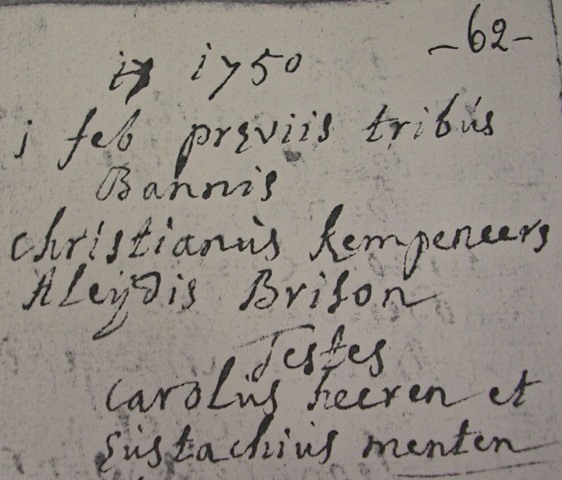 -62-
i7 i750
j feb previis tribus
Bannis
Christianus kempeneers
Aleydis Brison
Testes
Carolus heeren et
Eustachius menten